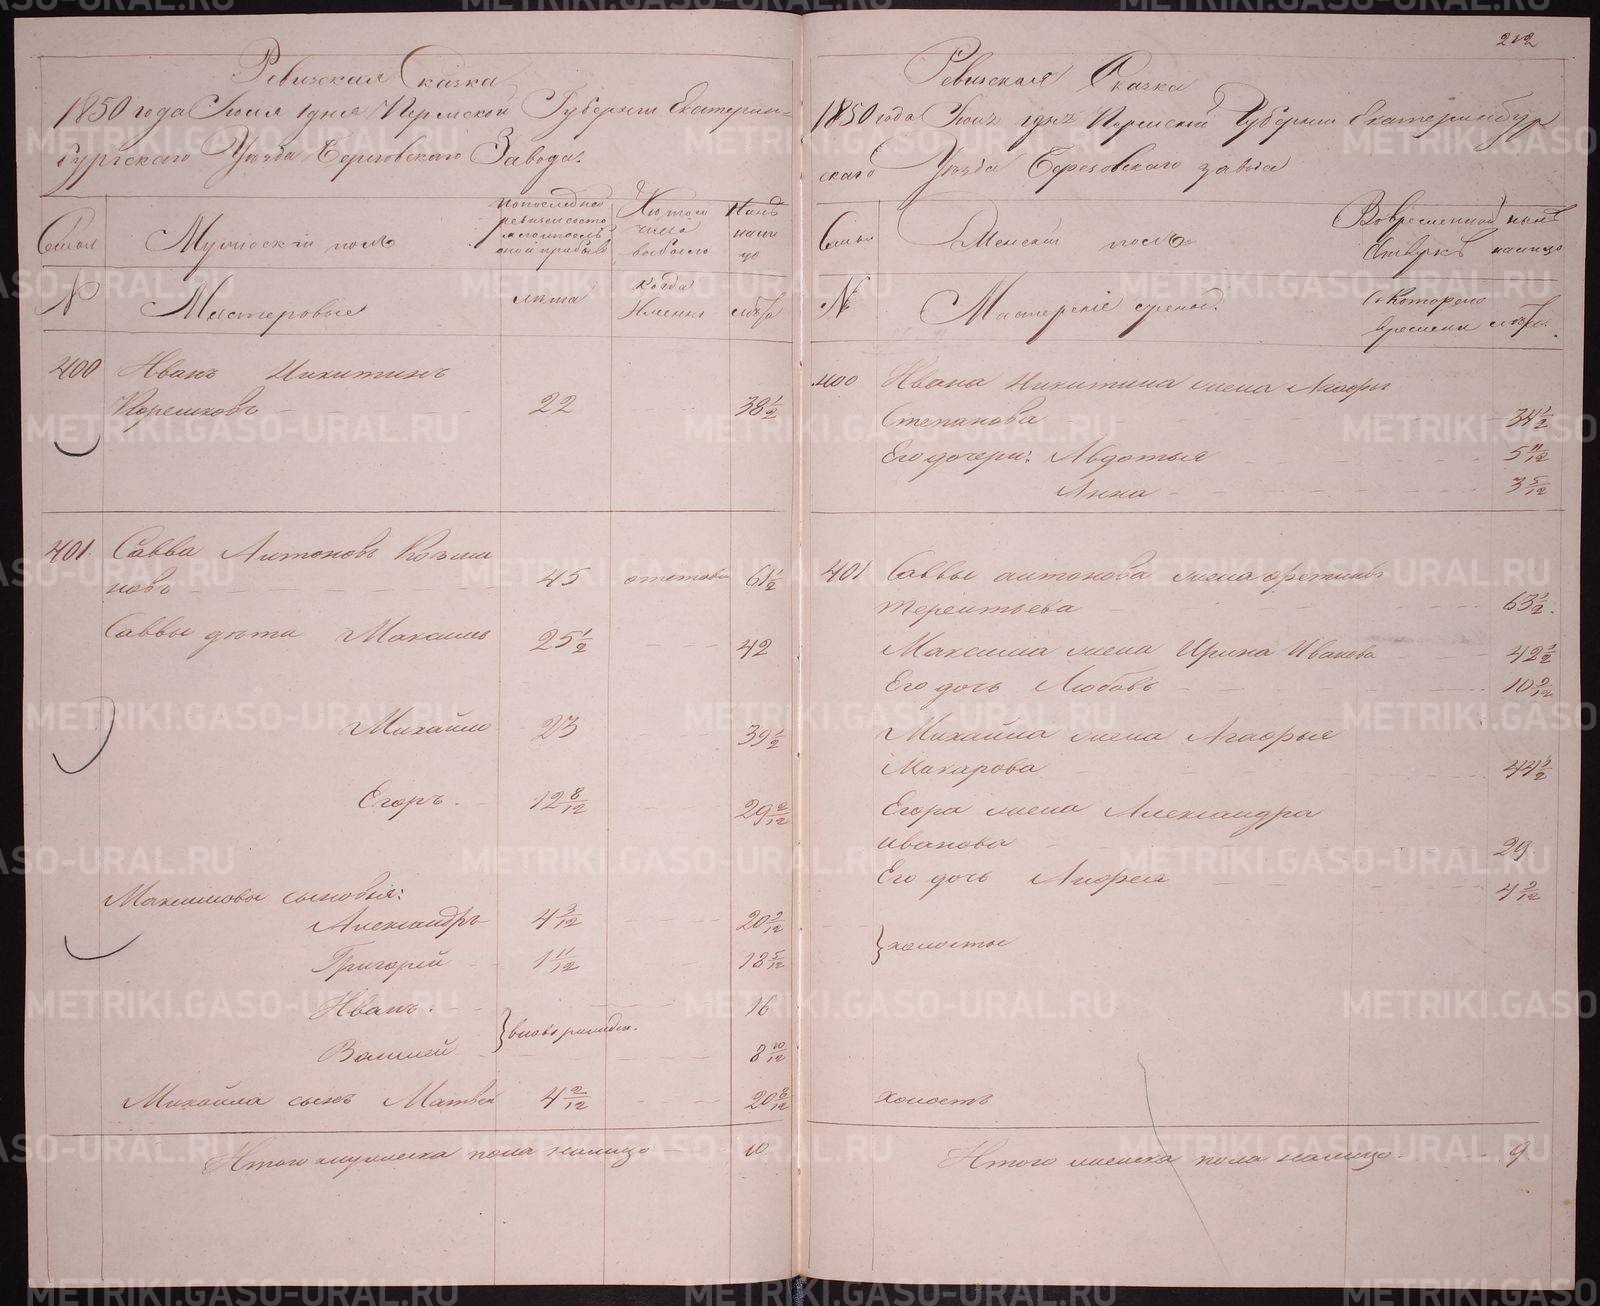 Ревизская Сказка
1850 года Июля 1 дня Пермской Губернiи Екатерин-
бургскаго Уезда Березовскаго Завода.
Семьи
Мужескiй полъ
по последней
ревизiи состо
яло и после
оной прибыло
Изъ того
числа
выбыло
Ныне
нали
цо
№
Мастеровые
лета
когда
Именно
лета
400 Иванъ Никитинъ
Корешковъ 22 38 1/2
401. Савва Антоновъ
новъ 45 отставн 61 1/2
Саввы дети Максимъ 25 1/2 42
Михайло 23 39 1/2
Егоръ. 12 8/12 29 2/12
Максимовы сыновья:
Александръ 4 3/12 20 9/12
Григорей 1 11/12 18 5/12
Иванъ. 16
вновь рожден.
Василей 8 10/12
Михайла сынъ Матвей 4 2/12 20 8/12
Итого мужеска пола налицо 10
212
Ревизская Сказка
1850 года Июля 1 дня Пермской Губернiи Екатеринбур
скаго Уезда Березовскаго завода
Семьи
Женскiй полъ
Во временной
отлучке
ныне
налицо
№
Мастерскiе жены.
Съ котораго
времени
лета.
400 Ивана Никитина жена Агафья
Степанова 34 1/2
Его дочери: Авдотья 5 11/12
Анна 3 5/12
401 Саввы Антонова жена
Терентьева 63 1/2.
Максима жена Ирина Иванова 42 1/2
Его дочь Любовь 10 9/12
Михайла жена Агафья
Макарова 44 1/2
Егора жена Александра
Иванова 29
Его дочь 4 2/12
холосты
холостъ
Итого женска пола налицо 9
METRIKI.GASO-URAL.RU